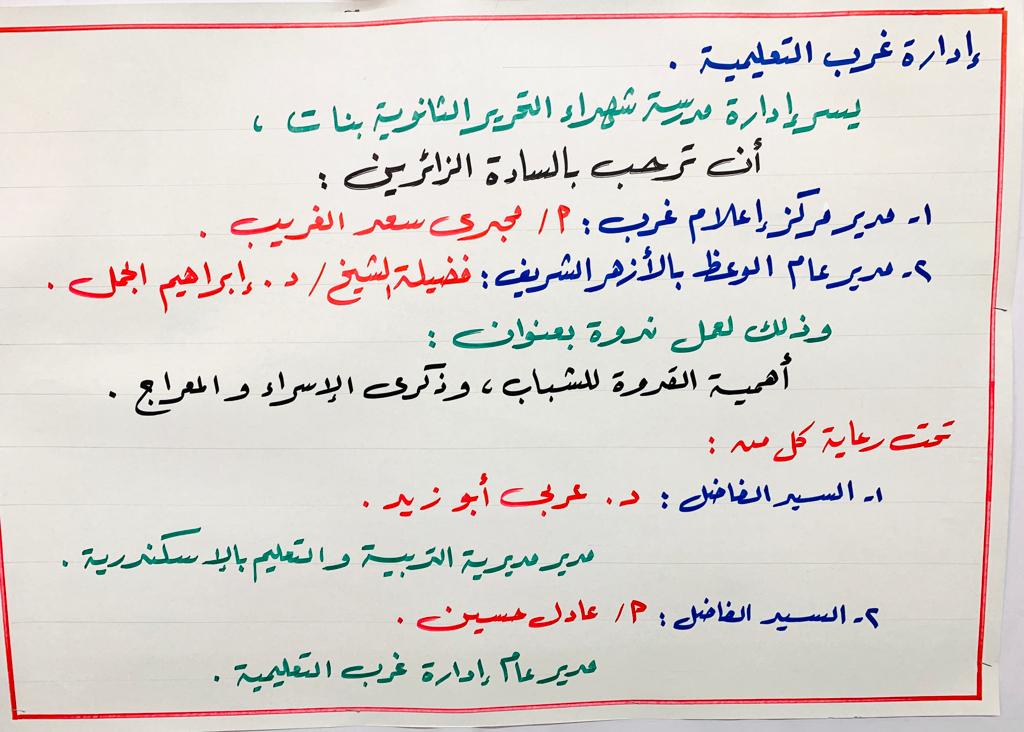 إدارة غرب التعليمية .
يسر إدارة مدرسة شهداء التحرير الثانوية بنات ،
أن ترحب بالسادة الزائرين :
١- مدير مركز إعلام غرب : م/ مجدى سعد الغريب .
٢- مدير عام الوعظ بالأزهر الشريف : فضيلة الشيخ / د . إبراهيم الجمل .
وذلك لعمل ندوة بعنوان :
أهمية القدوة للشباب ، وذكرى الإسراء و المعراج .
تحت رعاية كل من :
١- السيد الفاضل : د. عربى أبو زيد .
مدير مديرية التربية و التعليم بالإسكندرية .
٢- السيد الفاضل : م/ عادل حسين .
مدير عام إدارة غرب التعليمية .